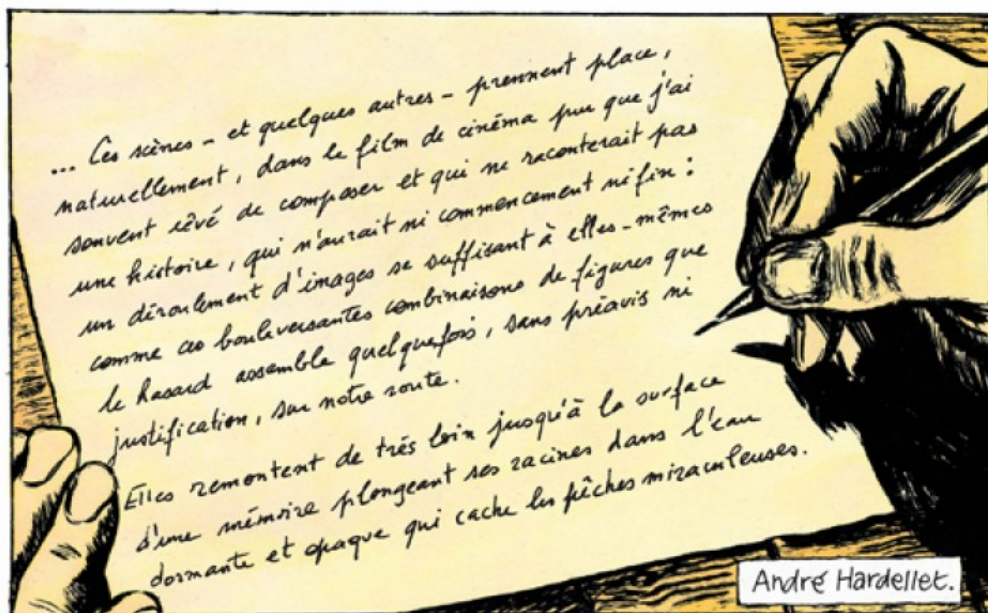 ... Ces scènes - et quelques autres - prennent place,
naturellement, dans le film de cinéma pur que j'ai
souvent rêvé de composer et qui ne raconterait pas
une histoire, qui n'aurait ni commencement ni fin :
un déroulement d'images se suffisant à elles-mêmes
comme ces bouleversantes combinaisons de figures que
le hasard assemble quelquefois, sans préavis ni
justification, sur notre route.
Elles remontent de très loin jusqu'à la surface
d'une mémoire plongeant ses racines dans l'eau
dormante et opaque qui cache les pêches miraculeuses.
André Hardellet.